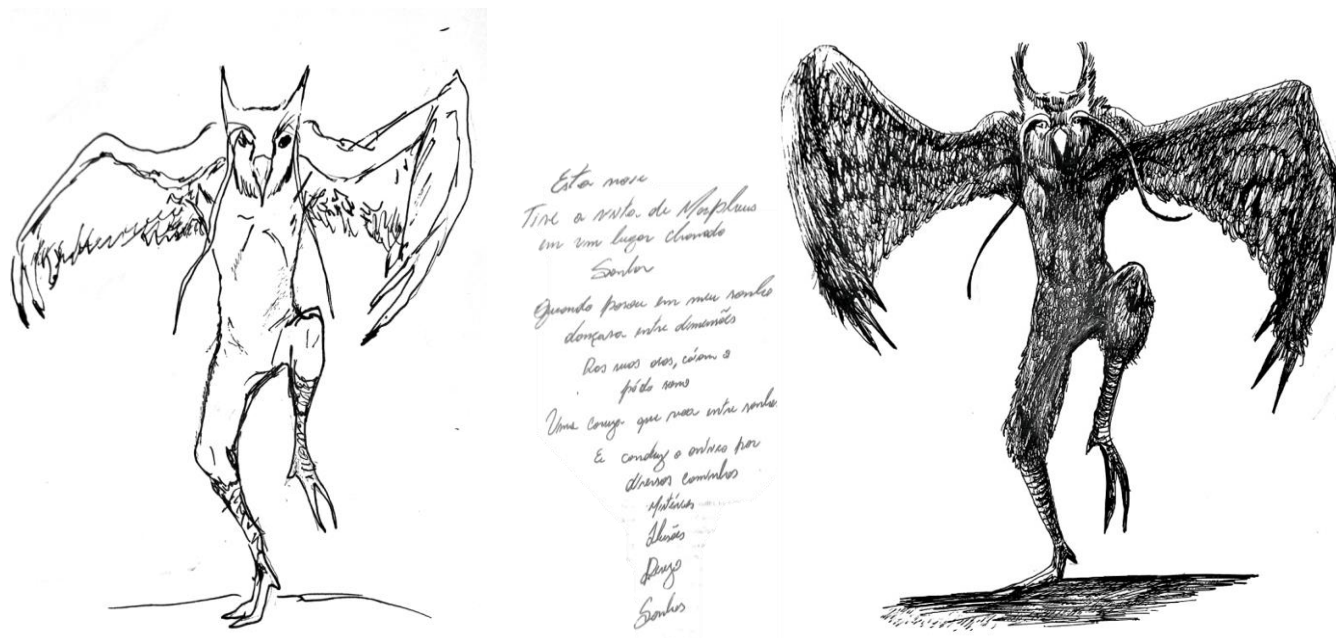 Esta noite
Tive a visita de Morpheus
em um lugar chamado
Sonhar
Quando pousou em meu sonho
dançava entre dimensões
Das suas asas, caíam o
pó do sono
Uma coruja que voa entre sonhos
E conduz o por
diversos caminhos
Mistérios
Ilusões
Sonhos